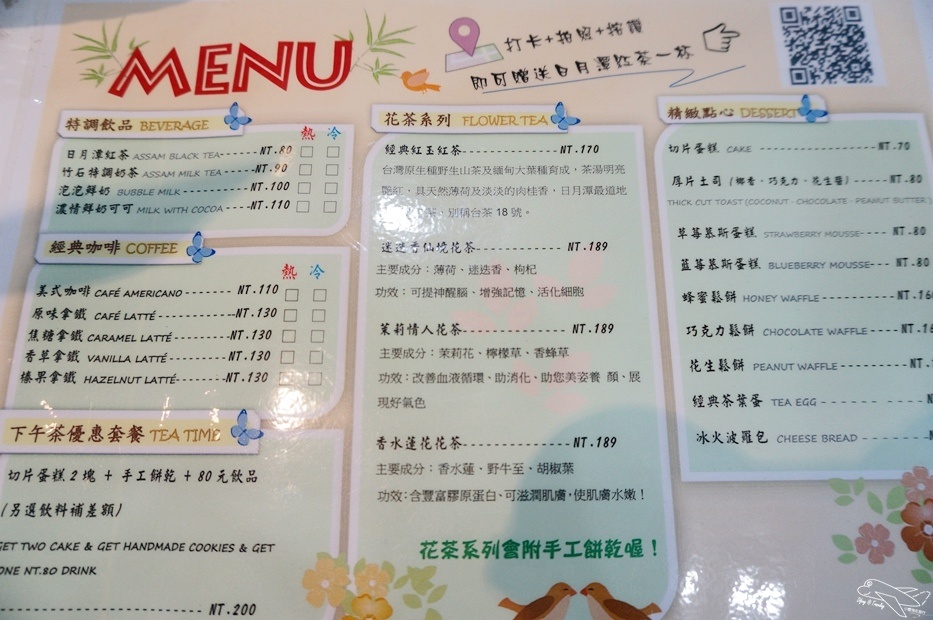 MENU
打卡+拍照+按讚
即可贈送日月潭紅茶一杯
特調飲品 BEVERAGE
熱 冷
日月潭紅茶 ASSAM BLACK TEA------NT.80
竹石特調奶茶 ASSAM MILK TEA----NT.90
泡泡鮮奶 BUBBLE MILK---------NT.100
濃情鮮奶可可 MILK WITH COCOA----NT.110
經典咖啡 COFFEE
熱 冷
美式咖啡 CAFÉ AMERICANO --------NT.110
原味拿鐵 CAFÉ LATTÉ------------NT.130
焦糖拿鐵 CARAMEL LATTÉ---------NT.130
香草拿鐵 VANILLA LATTÉ---------NT.130
榛果拿鐵 HAZELNUT LATTÉ-------NT.130
下午茶優惠套餐 TEA TIME
切片蛋糕2塊 + 手工餅乾 + 80元飲品
(另選飲料補差額)
GET TWO CAKE & GET HANDMADE COOKIES & GET
ONE NT.80 DRINK
-------------------- NT.200
花茶系列 FLOWER TEA
經典紅玉紅茶--------------NT.170
台灣原生種野生山茶及緬甸大葉種育成，茶湯明亮
艷紅，具天然薄荷及淡淡的肉桂香，日月潭最道地
別稱台茶 18 號。
迷迭香仙境花茶------------ NT.189
主要成分：薄荷、迷迭香、枸杞
功效：可提神醒腦、增強記憶、活化細胞
茉莉情人花茶--------------- NT.189
主要成分：茉莉花、檸檬草、香蜂草
功效：改善血液循環、助消化、助您美姿養 顏、展
現好氣色
香水蓮花花茶---------------NT.189
主要成分：香水蓮、野牛至、胡椒葉
功效:含豐富膠原蛋白、可滋潤肌膚，使肌膚水嫩！
花茶系列會附手工餅乾喔！
精緻點心 DESSERT
切片蛋糕 CAKE ----------------NT.70
厚片土司 (椰香、巧克力、花生醬)-----NT.80
THICK CUT TOAST (COCONUT、CHOCOLATE、PEANUT BUTTER)
草莓慕斯蛋糕 STRAWBERRY MOUSSE---NT.80
藍莓慕斯蛋糕 BLUEBERRY MOUSSE---NT.80
蜂蜜鬆餅 HONEY WAFFLE---------NT.16
巧克力鬆餅 CHOCOLATE WAFFLE-----NT.1
花生鬆餅 PEANUT WAFFLE--------NT.
經典茶葉蛋 TEA EGG -----------N
冰火波羅包 CHEESE BREAD --------